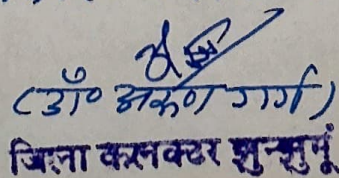 (डॉ० अरुण गर्ग)
जिला कलक्टर झुन्झुनूं